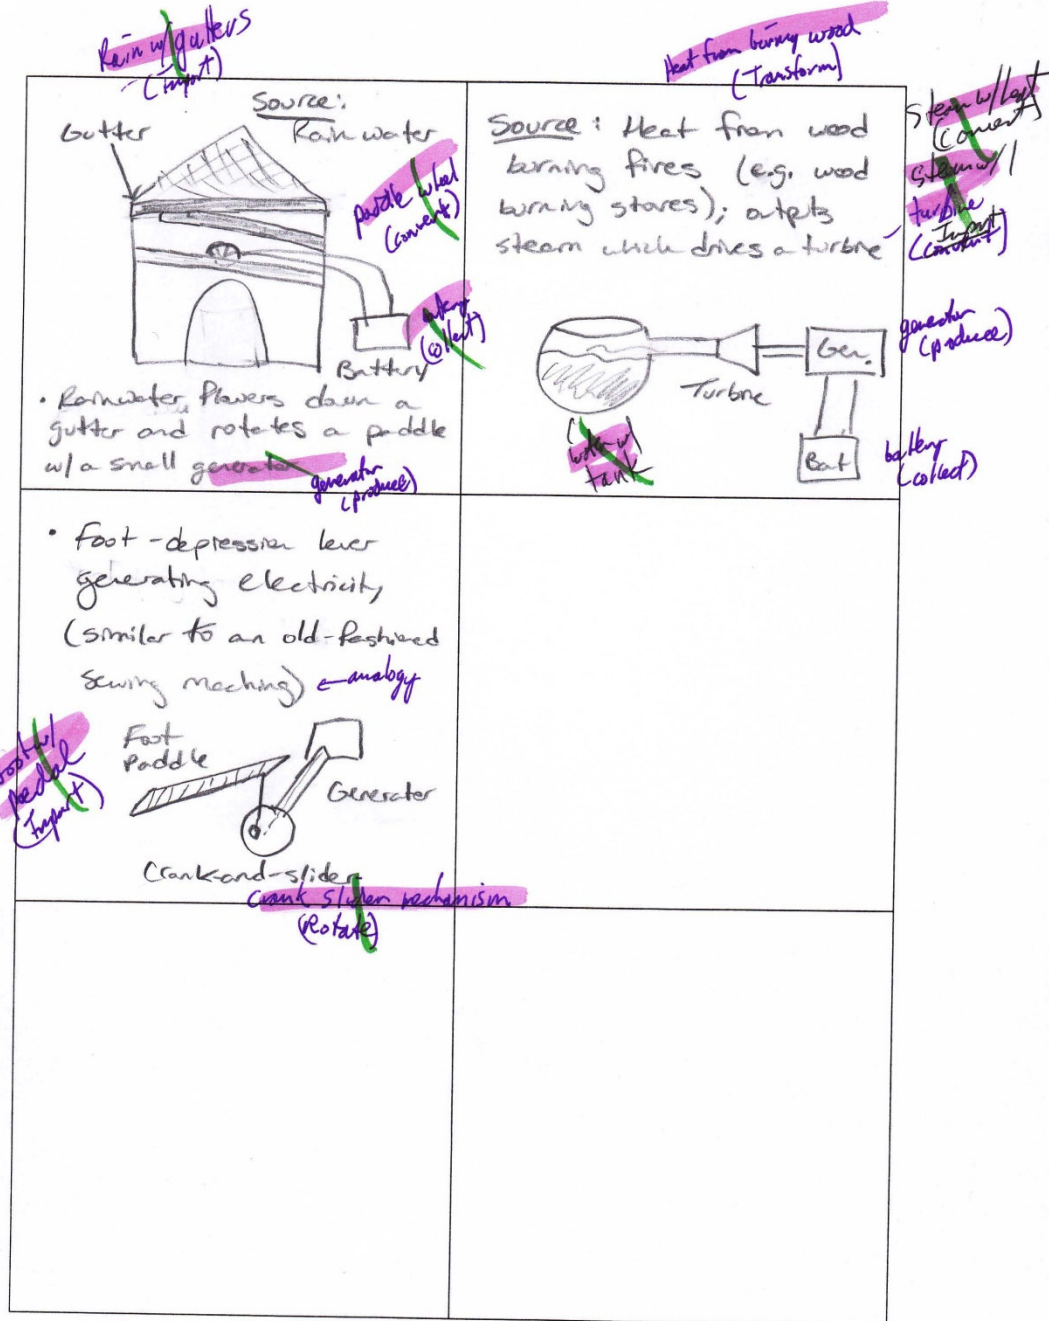 Rain w/ gutters
(Import)
Heat from burning wood
(Transform)
Source:
Rain water
Gutter
paddle wheel
(convert)
(collect)
Battery
• Rainwater flowers down a
gutter and rotates a paddle
w/a small generator
generator
(produce)
Source: Heat from wood
burning fires (e.g. wood
burning stoves); outputs
steam which drives a turbine
steam w/
(convert)
steam w/
turbine
Import
Gen.
generator
(produce)
Turbine
Bat
battery
(collect)
water w/
tank
• Foot-depression lever
generating electricity
(similar to an old-fashioned
sewing maching) ← analogy
Foot
Paddle
foot w/
pedal
(Import)
Generater
Crank-and-slider
crank slider mechanism
(Rotate)